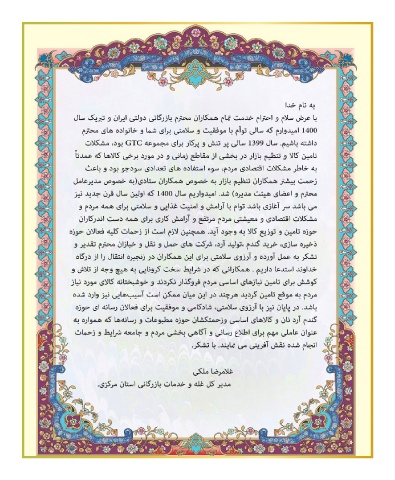 به نام خدا
با عرض سلام و احترام خدمت تمام همکاران محترم بازرگانی دولتی ایران و تبریک سال
1400 امیدوارم که سالی توأم با موفقیت و سلامتی برای شما و خانواده های محترم
داشته باشیم. سال 1399 سالی پر تنش و پرکار برای مجموعه GTC بود، مشکلات
تامین کالا و تنظیم بازار در بخشی از مقاطع زمانی و در مورد برخی کالاها که عمدتاً
به خاطر مشکلات اقتصادی مردم، سوء استفاده های تعدادی سودجو بود و باعث
زحمت بیشتر همکاران تنظیم بازار به خصوص همکاران ستادی(به خصوص مدیرعامل
محترم و اعضای هیئت مدیره) شد. امیدواریم سال 1400 که اولین سال قرن جدید نیز
می باشد سر آغازی باشد توام با آرامش و امنیت غذایی و سلامتی برای همه مردم و
مشکلات اقتصادی و معیشتی مردم مرتفع و آرامش کاری برای همه دست اندرکاران
حوزه تامین و توزیع کالا به وجود آید. همچنین لازم است از زحمات کلیه فعالان حوزه
ذخیره سازی، خرید گندم ،تولید آرد، شرکت های حمل و نقل و خبازان محترم تقدیر و
تشکر به عمل آورده و آرزوی سلامتی برای این همکاران در زنجیره انتقال را از درگاه
خداوند استدعا داریم . همکارانی که در شرایط سخت کرونایی به هیچ وجه از تلاش و
کوشش برای تامین نیازهای اساسی مردم فروگذار نکردند و خوشبختانه کالای مورد نیاز
مردم به موقع تامین گردید هرچند در این میان ممکن است آسیب‌هایی نیز وارد شده
باشد. در پایان نیز با آرزوی سلامتی، شادکامی و موفقیت برای فعالان رسانه ای حوزه
گندم آرد نان و کالاهای اساسی وزحمتکشان حوزه مطبوعات و رسانه‌ها که همواره به
عنوان عاملی مهم برای اطلاع رسانی و آگاهی بخشی مردم و جامعه شرایط و زحمات
انجام شده نقش آفرینی می نمایند. با تشکر.
غلامرضا ملکی
مدیر کل غله و خدمات بازرگانی استان مرکزی.